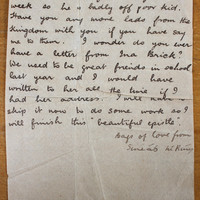 week so he is badly off poor kid.
Have you any more lads from the
Kingdom with you if you have say
me to them. I wonder do you ever
have a letter from Ina Brick?
We used to be great friends in school
last year and I would have
written to her all the time if I
had her address. I will
skip it now to do some work so I
will finish this "beautiful epistle".
of love from